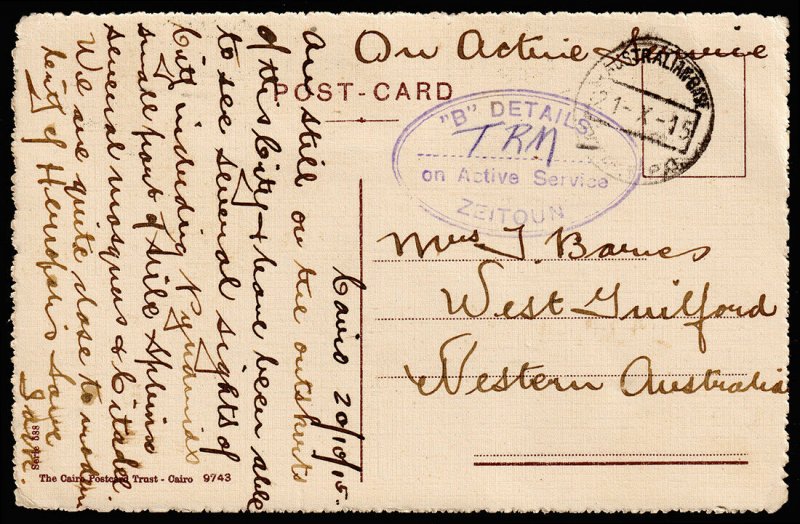 On Active Service
POST-CARD
"B" DETAILS
TRM
on Active Service
ZEITOUN
AUSTRALIAN BASE
21-X-15
Mrs J. Barnes
West Guilford
Western Australia
Cairo 20/10/15.
Am still on the outskirts
of this City & have been able
to see several sights of
City including Pyramids
small part of Nile Sphinx
several mosques & Citadel
We are quite close to modern
City of Heliopolis Love
Jack.
Serie 588
The Cairo Postcard Trust - Cairo 9743